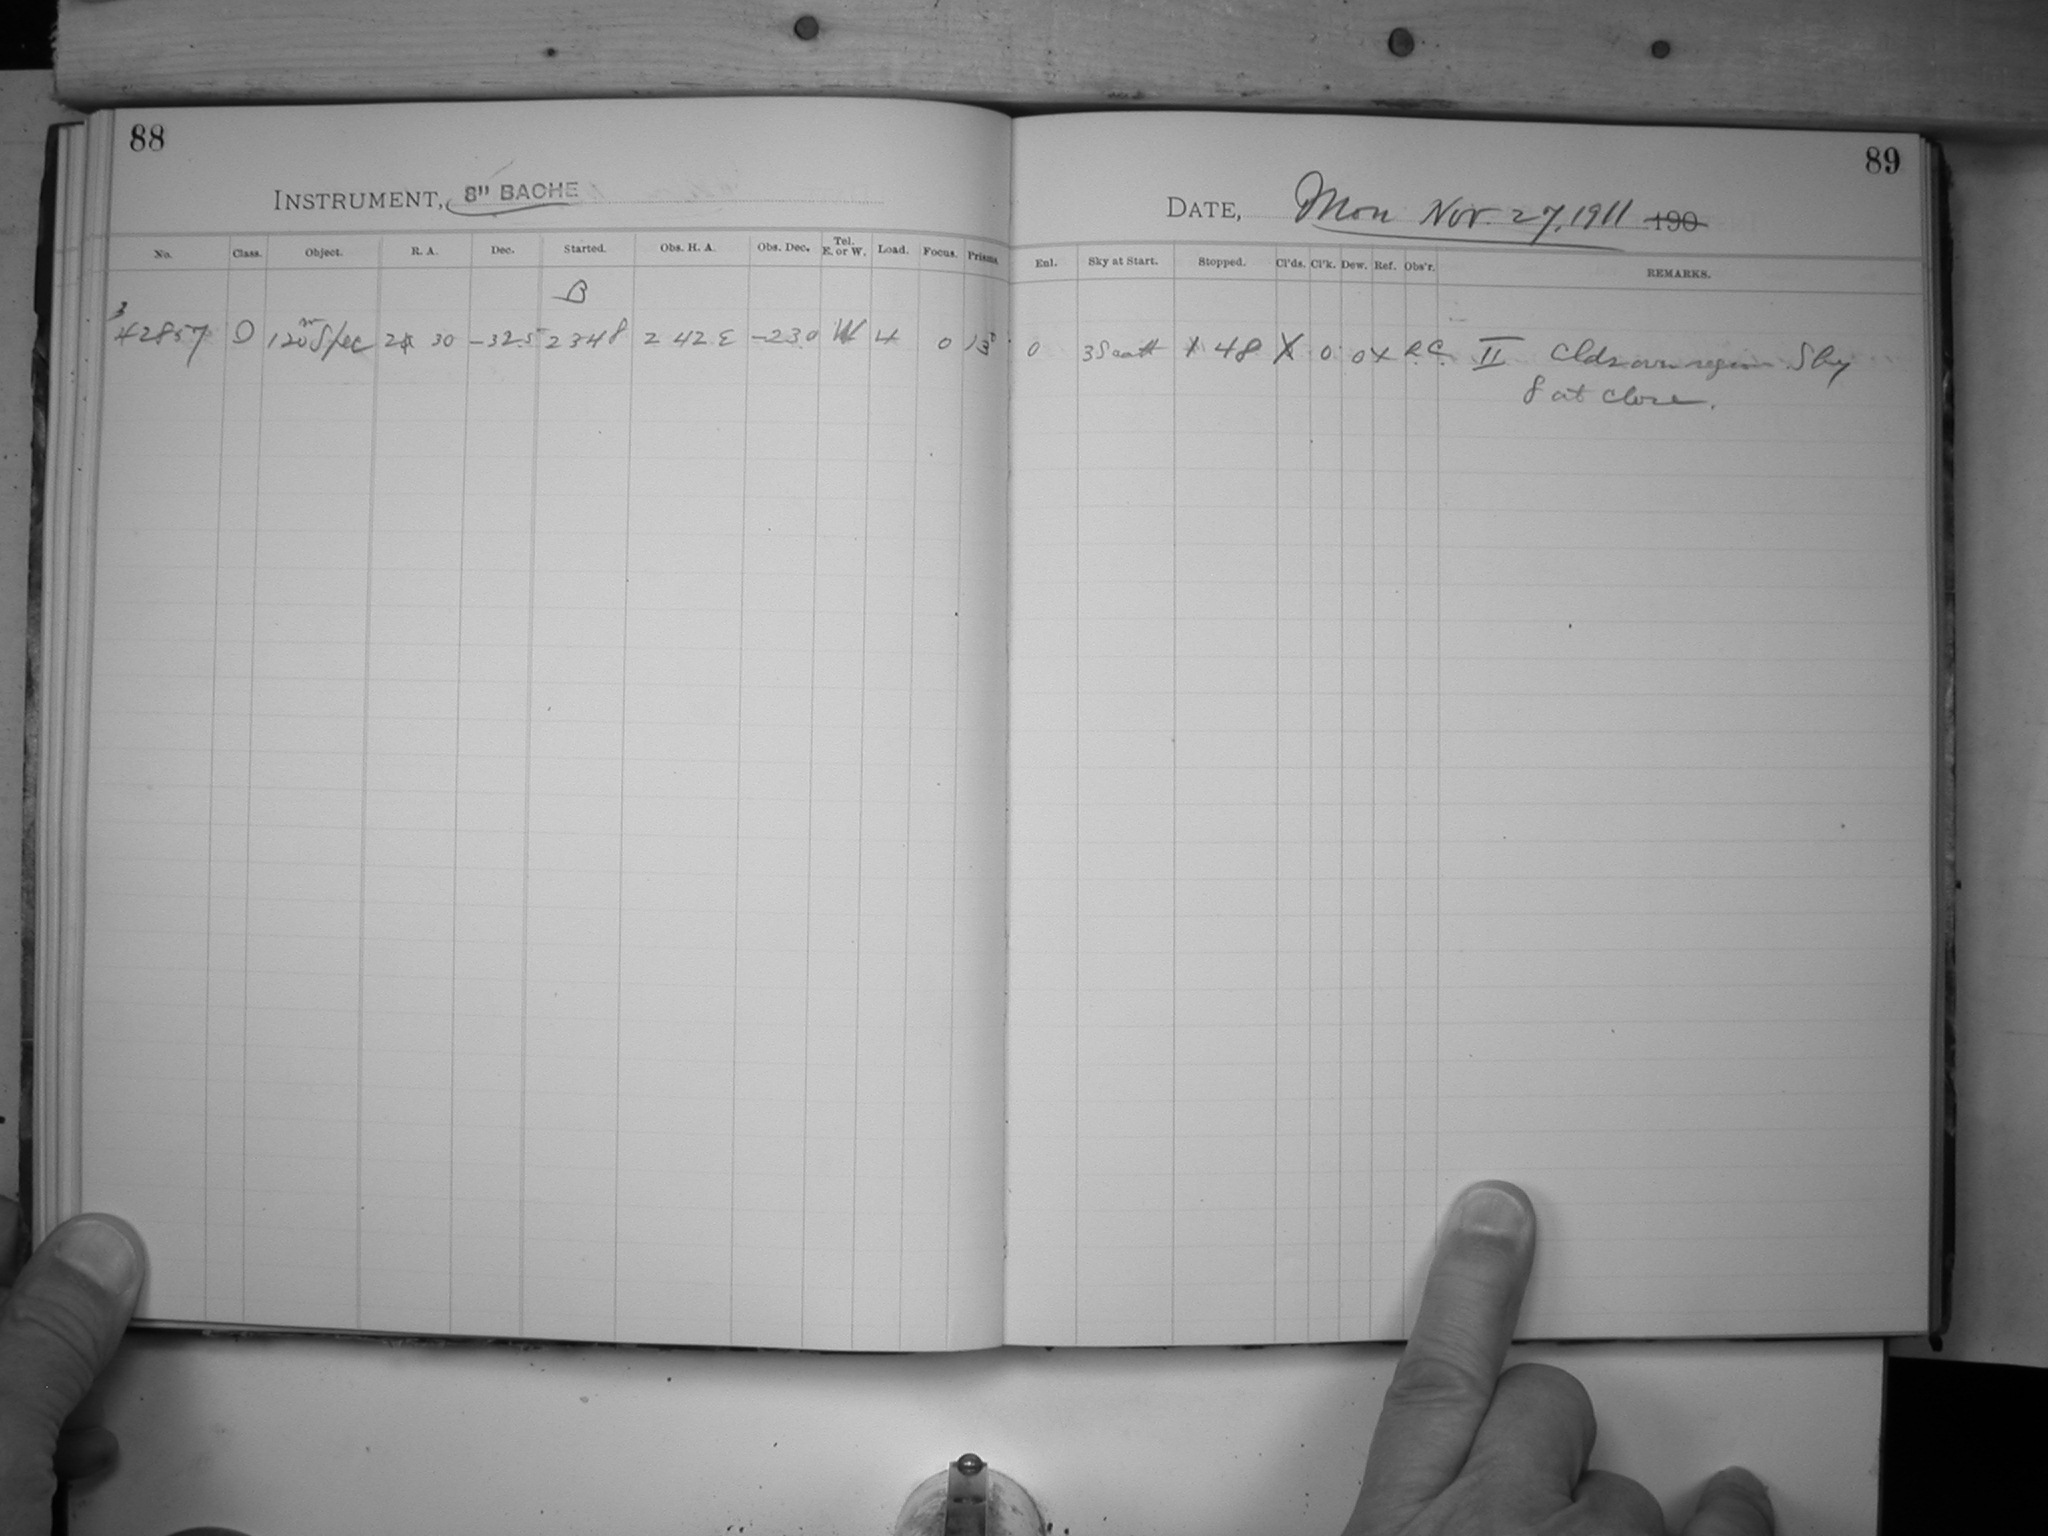 88
INSTRUMENT, 8" BACHE
No. Class. Object. R. A. Dec. Started. Obs. H. A. Obs. Dec. Tel. E. or W. Load. Focus. Prisms
B
3
42857 D 120m Spec 2 30 -32.5 23 48 2 42 E -23.0 W 4 0 13°
89
DATE, Mon Nov. 27, 1911 190
Enl. Sky at Start. Stopped. Cl'ds. Cl'k. Dew. Ref. Obs'r. REMARKS.
0 3 Scatt 1 48 X 0 0 X II Clds over region. Sky
8 at close.